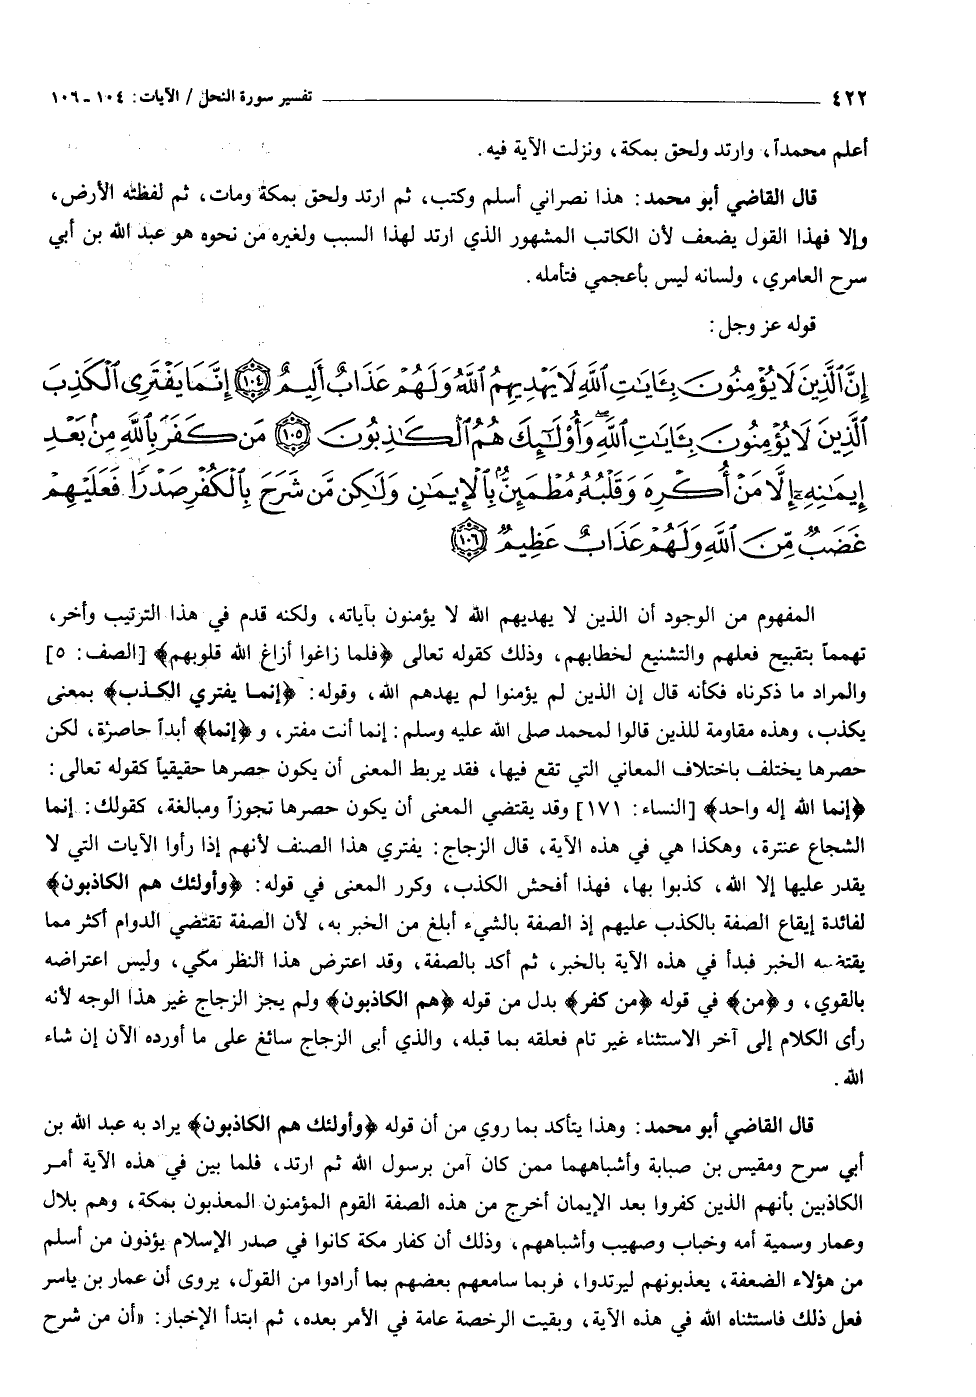 ٤٢٢ ــــــــــــــــــــ تفسير سورة النحل / الآيات: ١٠٤ ـ ١٠٦
أعلم محمداً، وارتد ولحق بمكة، ونزلت الآية فيه.
قال القاضي أبو محمد: هذا نصراني أسلم وكتب، ثم ارتد ولحق بمكة ومات، ثم لفظته الأرض،
وإلا فهذا القول يضعف لأن الكاتب المشهور الذي ارتد لهذا السبب ولغيره من نحوه هو عبد الله بن أبي
سرح العامري، ولسانه ليس بأعجمي فتأمله.
قوله عز وجل:
إِنَّ ٱلَّذِينَ لَا يُؤْمِنُونَ بِـَٔايَـٰتِ ٱللَّهِ لَا يَهْدِيهِمُ ٱللَّهُ وَلَهُمْ عَذَابٌ أَلِيمٌ ١٠٤ إِنَّمَا يَفْتَرِى ٱلْكَذِبَ
ٱلَّذِينَ لَا يُؤْمِنُونَ بِـَٔايَـٰتِ ٱللَّهِ وَأُوْلَـٰٓئِكَ هُمُ ٱلْكَـٰذِبُونَ ١٠٥ مَن كَفَرَ بِٱللَّهِ مِنۢ بَعْدِ
إِيمَـٰنِهِۦٓ إِلَّا مَنْ أُكْرِهَ وَقَلْبُهُۥ مُطْمَئِنٌّۢ بِٱلْإِيمَـٰنِ وَلَـٰكِن مَّن شَرَحَ بِٱلْكُفْرِ صَدْرًا فَعَلَيْهِمْ
غَضَبٌ مِّنَ ٱللَّهِ وَلَهُمْ عَذَابٌ عَظِيمٌ ١٠٦
المفهوم من الوجود أن الذين لا يهديهم الله لا يؤمنون بآياته، ولكنه قدم في هذا الترتيب وأخر،
تهمماً بتقبيح فعلهم والتشنيع لخطابهم، وذلك كقوله تعالى ﴿فلما زاغوا أزاغ الله قلوبهم﴾ [الصف: ٥]
والمراد ما ذكرناه فكأنه قال إن الذين لم يؤمنوا لم يهدهم الله، وقوله: ﴿إنما يفتري الكذب﴾ بمعنى
يكذب، وهذه مقاومة للذين قالوا لمحمد صلى الله عليه وسلم: إنما أنت مفتر، و ﴿إنما﴾ أبداً حاصرة، لكن
حصرها يختلف باختلاف المعاني التي تقع فيها، فقد يربط المعنى أن يكون حصرها حقيقياً كقوله تعالى:
﴿إنما الله إله واحد﴾ [النساء: ١٧١] وقد يقتضي المعنى أن يكون حصرها تجوزاً ومبالغة، كقولك: إنما
الشجاع عنترة، وهكذا هي في هذه الآية، قال الزجاج: يفتري هذا الصنف لأنهم إذا رأوا الآيات التي لا
يقدر عليها إلا الله، كذبوا بها، فهذا أفحش الكذب، وكرر المعنى في قوله: ﴿وأولئك هم الكاذبون﴾
لفائدة إيقاع الصفة بالكذب عليهم إذ الصفة بالشيء أبلغ من الخبر به، لأن الصفة تقتضي الدوام أكثر مما
يقتضيه الخبر فبدأ في هذه الآية بالخبر، ثم أكد بالصفة، وقد اعترض هذا النظر مكي، وليس اعتراضه
بالقوي، و ﴿من﴾ في قوله ﴿من كفر﴾ بدل من قوله ﴿هم الكاذبون﴾ ولم يجز الزجاج غير هذا الوجه لأنه
رأى الكلام إلى آخر الاستثناء غير تام فعلقه بما قبله، والذي أبى الزجاج سائغ على ما أورده الآن إن شاء
الله.
قال القاضي أبو محمد: وهذا يتأكد بما روي من أن قوله ﴿وأولئك هم الكاذبون﴾ يراد به عبد الله بن
أبي سرح ومقيس بن صبابة وأشباههما ممن كان آمن برسول الله ثم ارتد، فلما بين في هذه الآية أمر
الكاذبين بأنهم الذين كفروا بعد الإيمان أخرج من هذه الصفة القوم المؤمنون المعذبون بمكة، وهم بلال
وعمار وسمية أمه وخباب وصهيب وأشباههم، وذلك أن كفار مكة كانوا في صدر الإسلام يؤذون من أسلم
من هؤلاء الضعفة، يعذبونهم ليرتدوا، فربما سامعهم بعضهم بما أرادوا من القول، يروى أن عمار بن ياسر
فعل ذلك فاستثناه الله في هذه الآية، وبقيت الرخصة عامة في الأمر بعده، ثم ابتدأ الإخبار: «أن من شرح